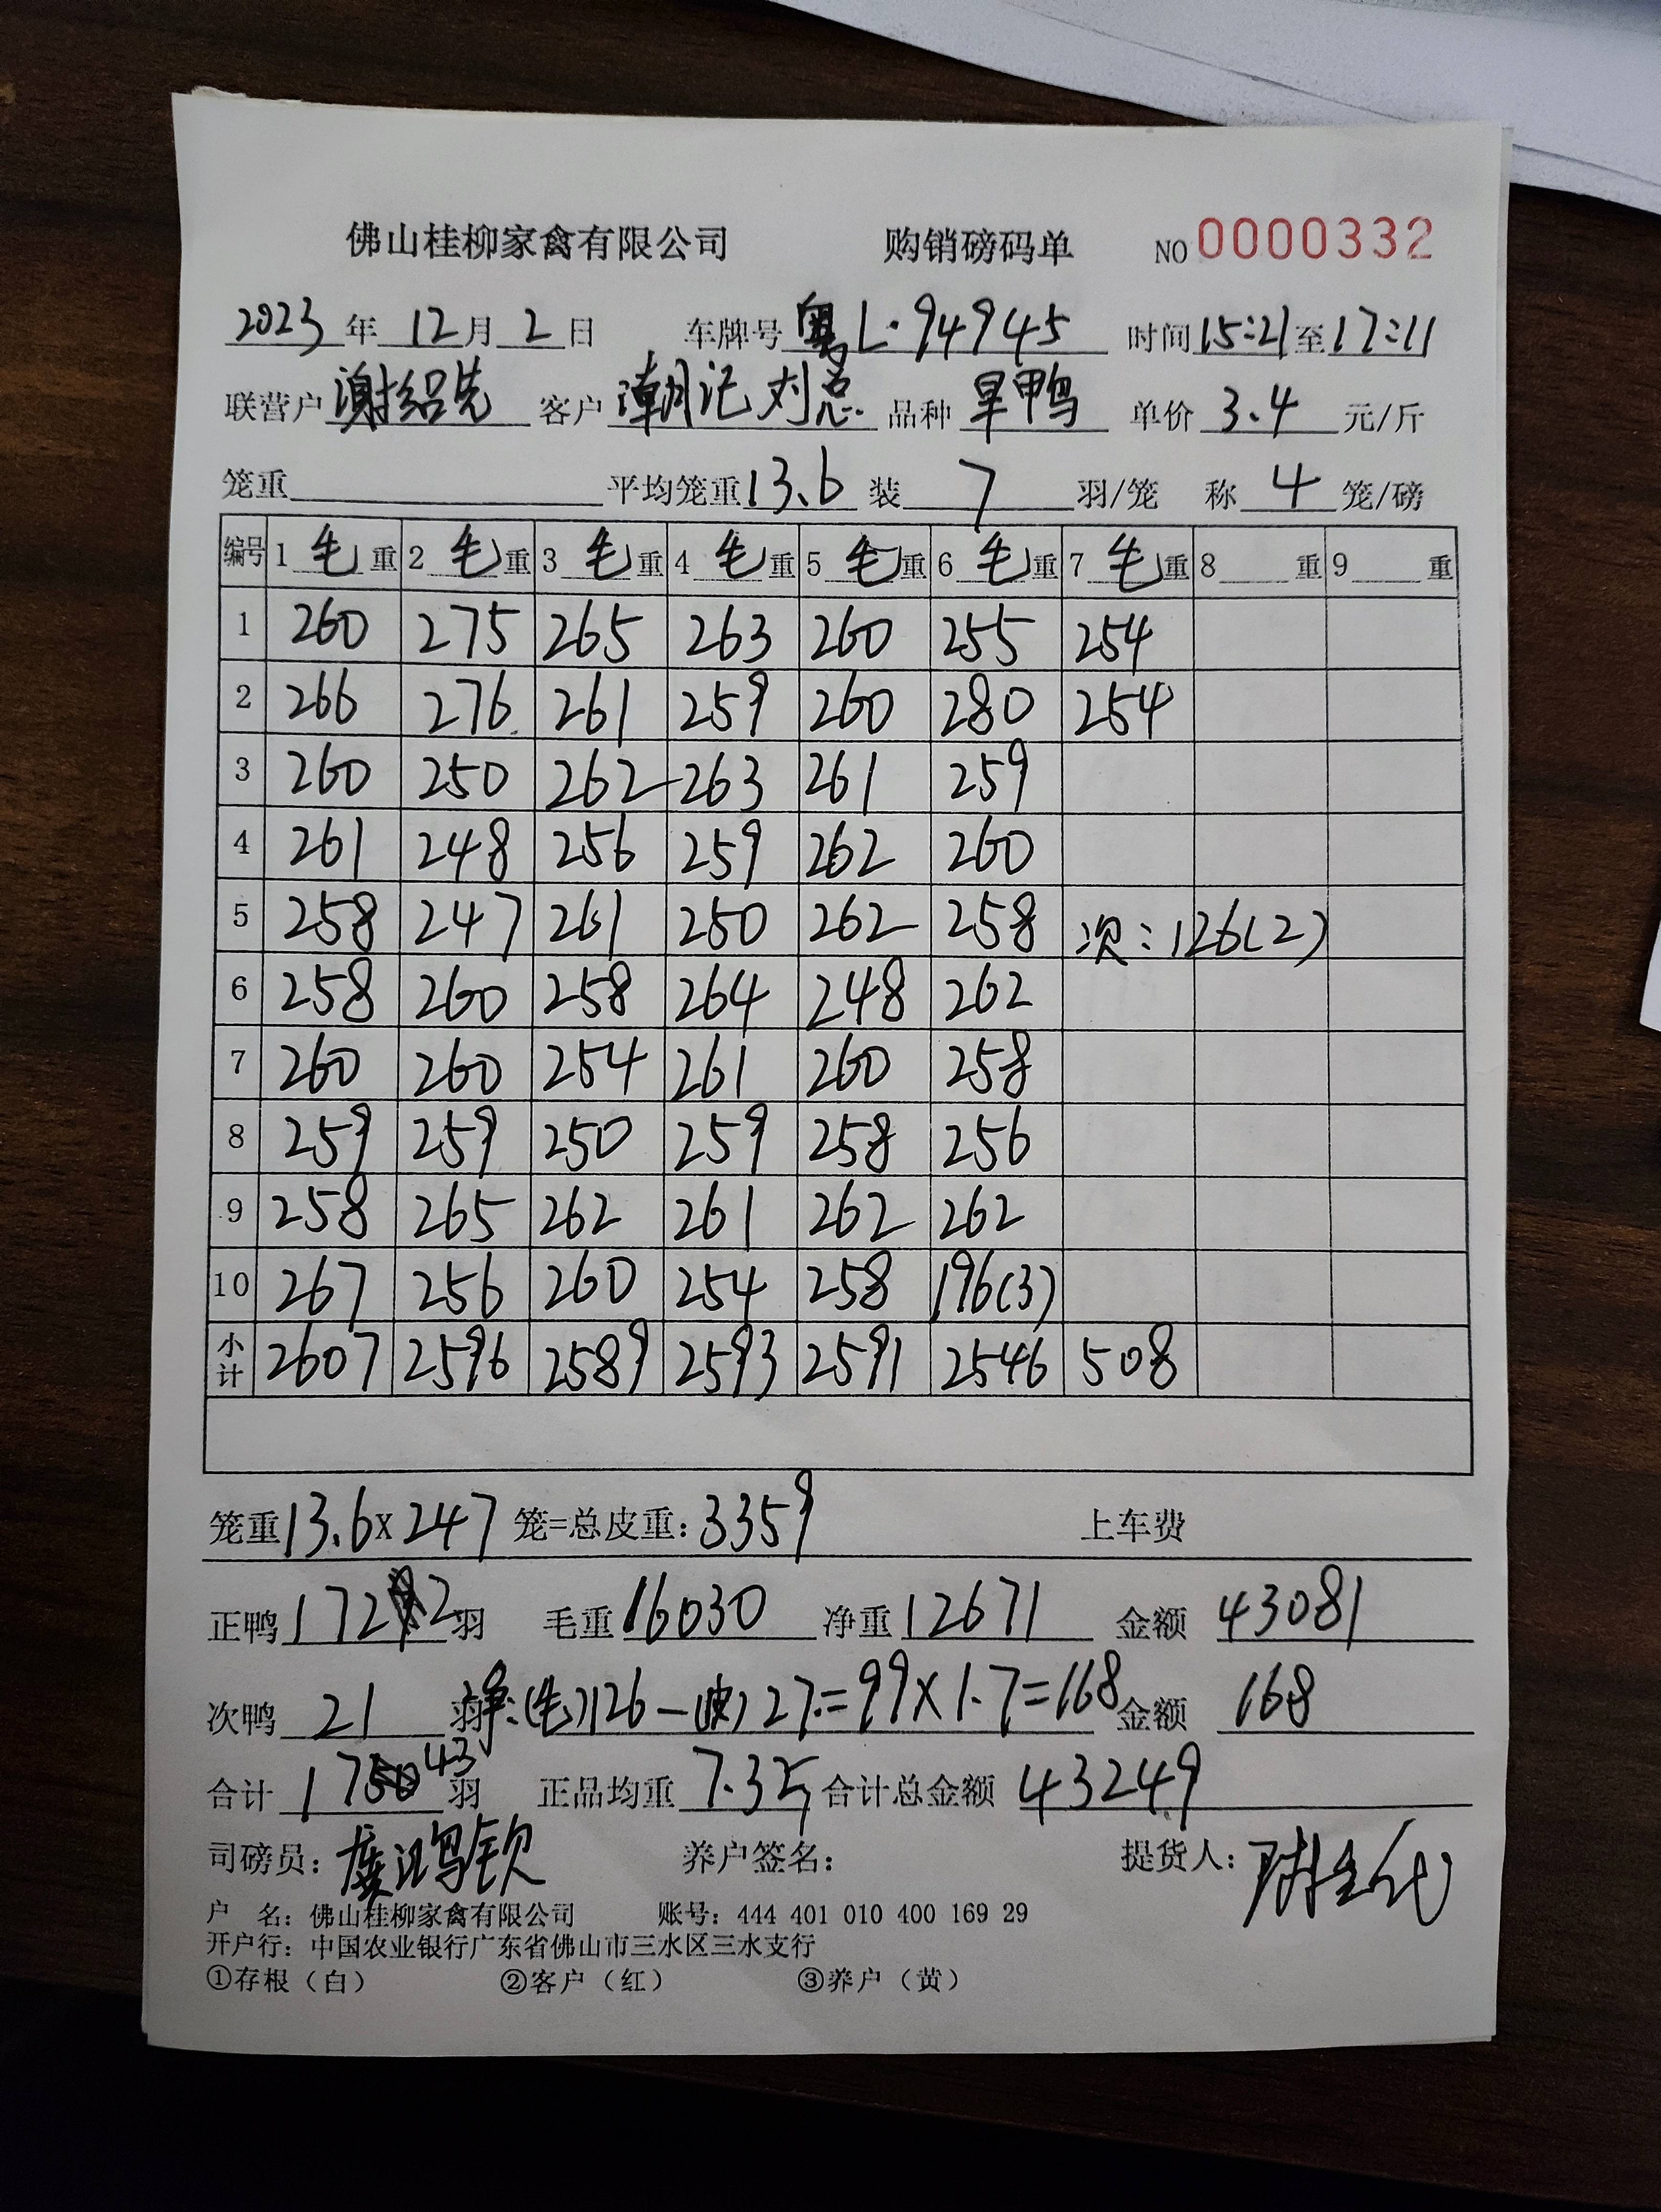 佛山桂柳家禽有限公司 购销磅码单 NO 0000332
2023 年 12 月 2 日 车牌号 粤L·94945 时间 15:21 至 17:11
联营户 谢绍先 客户 潮记 刘总 品种 旱鸭 单价 3.4 元/斤
笼重 平均笼重 13.6 装 7 羽/笼 称 4 笼/磅
编号 1 毛 重 2 毛 重 3 毛 重 4 毛 重 5 毛 重 6 毛 重 7 毛 重 8 重 9 重
1 260 275 265 263 260 255 254
2 266 276 261 259 260 280 254
3 260 250 262 263 261 259
4 261 248 256 259 262 260
5 258 247 261 250 262 258 次:126(2)
6 258 260 258 264 248 262
7 260 260 254 261 260 258
8 259 259 250 259 258 256
9 258 265 262 261 262 262
10 267 256 260 254 258 196(3)
小计 2607 2596 2589 2593 2591 2546 508
笼重 13.6×247 笼=总皮重: 3359 上车费
正鸭 1722 羽 毛重 16030 净重 12671 金额 43081
次鸭 21 羽 净:(毛)126-(皮)27=99×1.7=168 金额 168
合计 1743 羽 正品均重 7.35 合计总金额 43249
司磅员: 鸿钦 养户签名: 提货人:
户 名: 佛山桂柳家禽有限公司 账号: 444 401 010 400 169 29
开户行: 中国农业银行广东省佛山市三水区三水支行
①存根(白) ②客户(红) ③养户(黄)